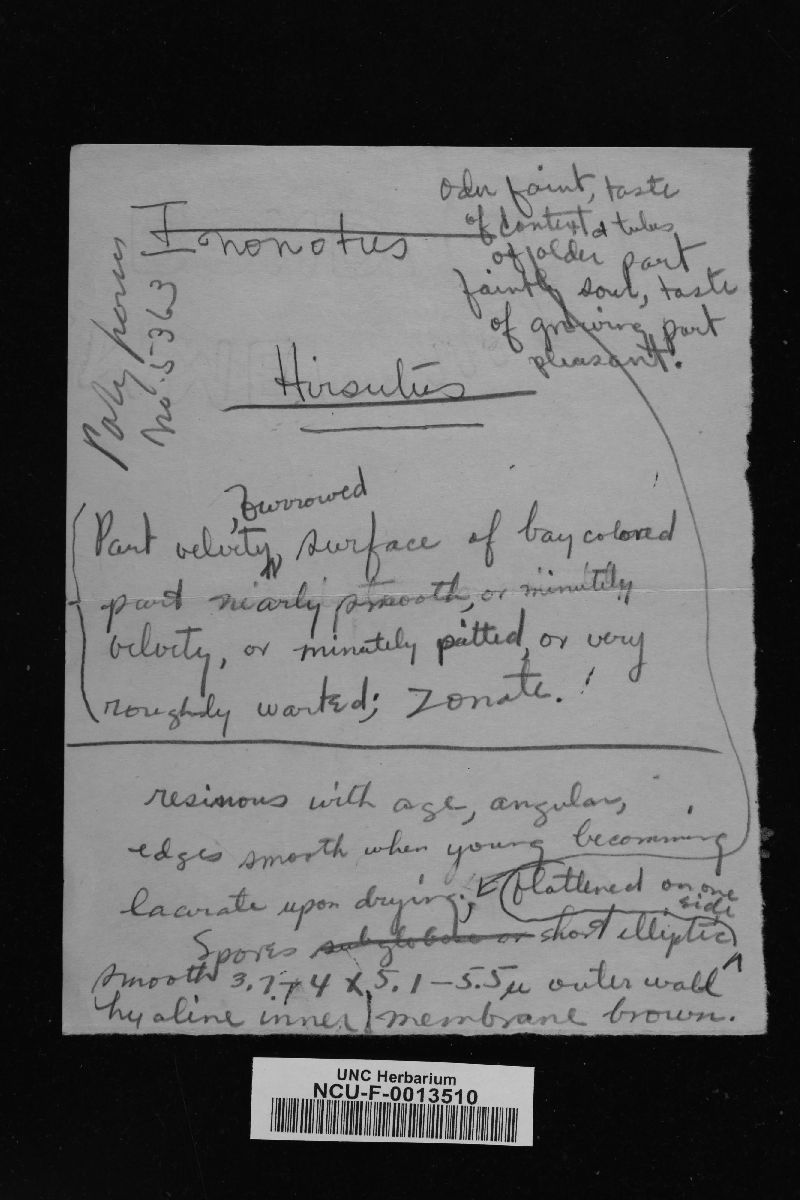 Odor faint, taste
of context & tubes
of older part
faintly sour, taste
of growing part
pleasant.
Inonotus
Polyporus
No. 5363
Hirsutus
, furrowed
Part velvety, surface of bay colored
part nearly smooth, or minutely
velvety, or minutely pitted, or very
roughly warted; Zonate.
resinous with age, angular,
edges smooth when young becomming
lacerate upon drying;
flattened on one
side
Spores subglobose or short elliptic
smooth 3.7-4 x 5.1-5.5µ outer wall
hyaline inner membrane brown.
UNC Herbarium
NCU-F-0013510